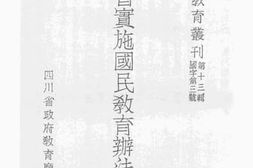 教育叢刊
第十三輯
國字第三號
省實施國民教育辦法
四川省政府教育廳